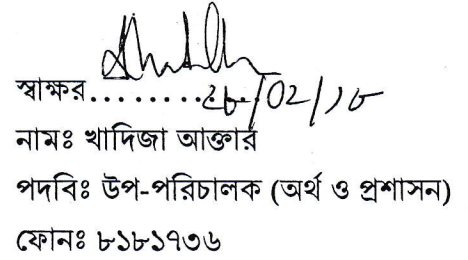 স্বাক্ষর............২৮/০২/১৮
নামঃ খাদিজা আক্তার
পদবিঃ উপ-পরিচালক (অর্থ ও প্রশাসন)
ফোনঃ ৮১৮১৭৩৬